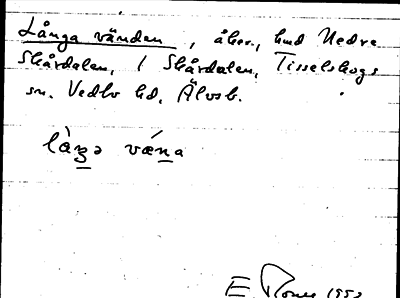 Långa vänden, åker, hmd Nedre
Skårdalen, 1 Skårdalen, Tisselskogs
sn. Vedbo hd, Älvsb.
là̱ŋə vǽṉa
E. 1952